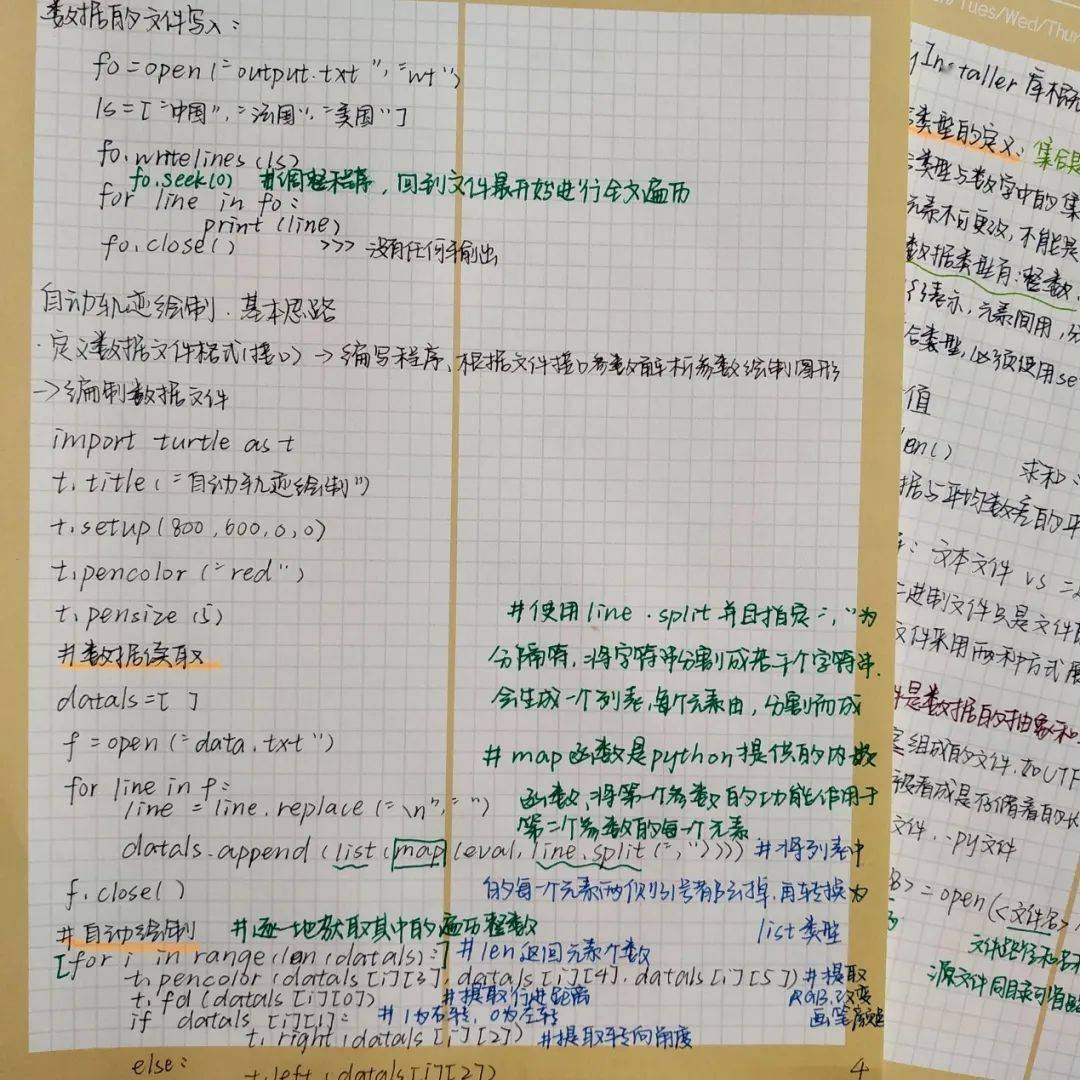 数据的文件写入:
fo=open("output.txt","wt")
ls=["中国","法国","美国"]
fo.writelines(ls)
fo.seek(0) #调整程序,回到文件最开始进行全文遍历
for line in fo:
print(line)
fo.close() >>>没有任何输出
自动轨迹绘制.基本思路
·定义数据文件格式(接口)→编写程序,根据文件接口参数解析参数绘制图形
→编制数据文件
import turtle as t
t.title("自动轨迹绘制")
t.setup(800,600,0,0)
t.pencolor("red")
t.pensize(5)
#数据读取
datals=[ ]
f=open("data.txt")
for line in f:
line=line.replace("\n","")
datals.append(list(map(eval,line.split(",")))) #将列表中
f.close() 的每一个元素两侧引号都去掉,再转换为
list类型
#使用line.split并且指定","为
分隔符,将字符串分割成若干个字符串.
会生成一个列表,每个元素由,分割而成
#map函数是python提供的内嵌
函数,将第一个参数的功能作用于
第二个参数的每一个元素
#自动绘制 #逐一地获取其中的遍历整数
[for i in range(len(datals):] #len返回元素个数
t.pencolor(datals[i][3],datals[i][4],datals[i][5]) #提取
RGB,改变
画笔颜色
t.fd(datals[i][0]) #提取行进距离
if datals[i][1]: #1为右转,0为左转
t.right(datals[i][2]) #提取转向角度
else:
t.left(datals[i][2])
4
/Tues/Wed/Thur
yInstaller 库
类型的定义:集合是
类型与数学中的集
元素不可更改,不能是
数据类型有:整数,
{}表示,元素间用,分
合类型,必须使用se
值
len() 求和:
据与平均数差的平
:文本文件 vs 二
二进制文件只是文件的
文件采用两种方式展
件是数据的抽象和
组成的文件,如UTF
被看成是存储着的长
文件、.py文件
>=open(<文件名>
文件路径和名
源文件同目录可省